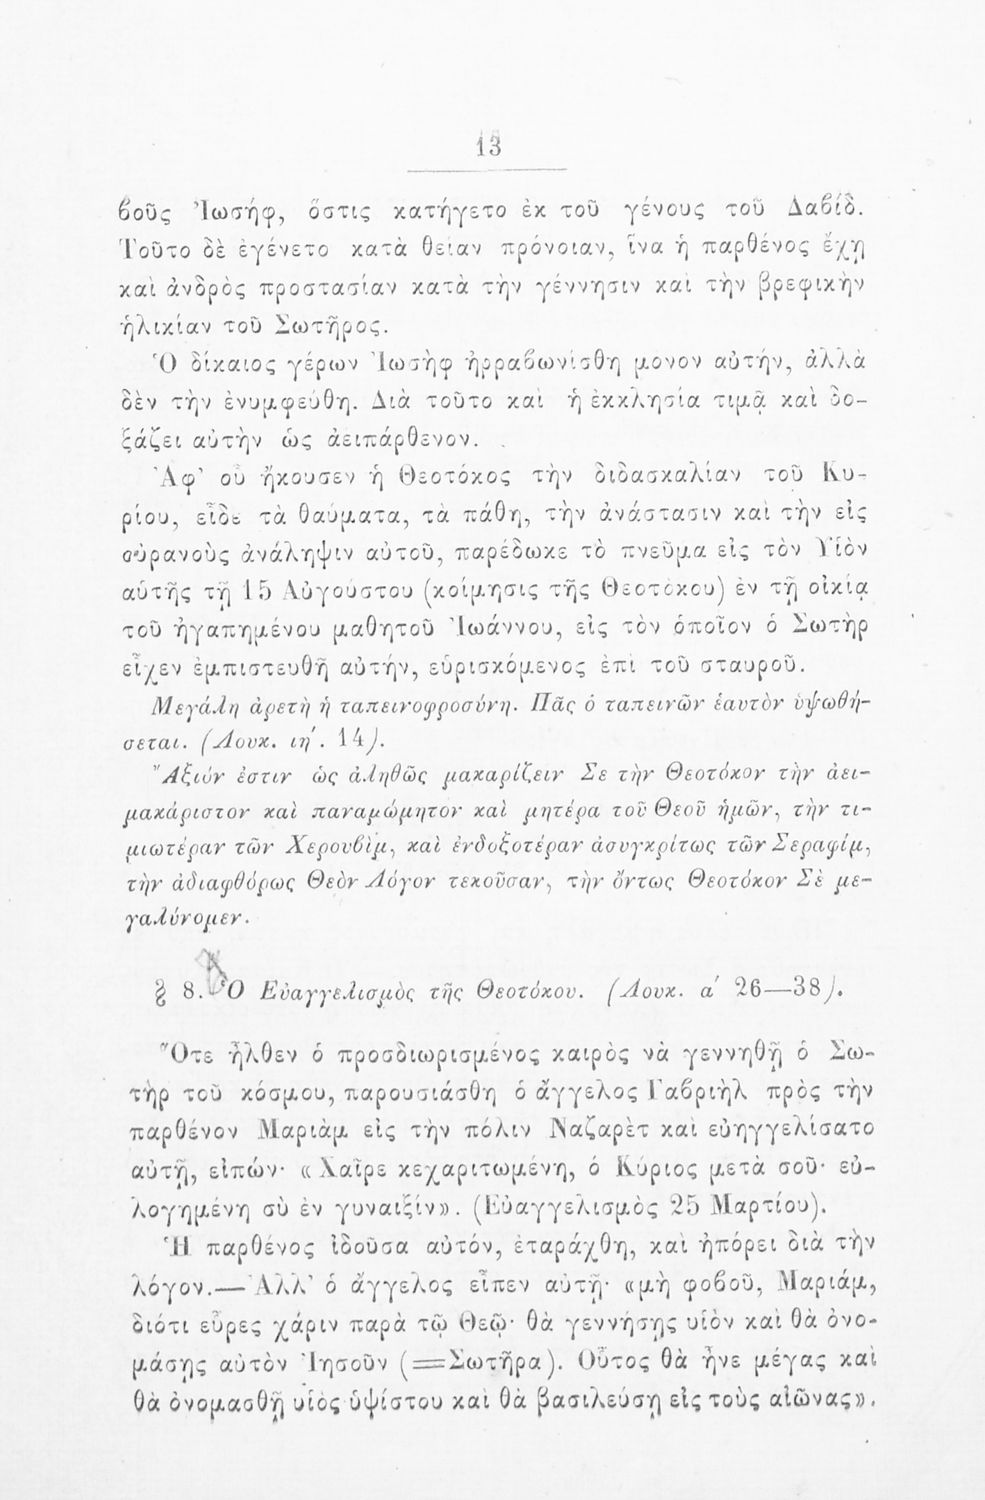 13
βοῦς Ἰωσήφ, ὅστις κατήγετο ἐκ τοῦ γένους τοῦ Δαβίδ.
Τοῦτο δὲ ἐγένετο κατὰ θείαν πρόνοιαν, ἵνα ἡ παρθένος ἔχῃ
καὶ ἀνδρὸς προστασίαν κατὰ τὴν γέννησιν καὶ τὴν βρεφικὴν
ἡλικίαν τοῦ Σωτῆρος.
Ὁ δίκαιος γέρων Ἰωσὴφ ἠρραβωνίσθη μονον αὐτήν, ἀλλὰ
δὲν τὴν ἐνυμφεύθη. Διὰ τοῦτο καὶ ἡ ἐκκλησία τιμᾷ καὶ δο-
ξάζει αὐτὴν ὡς ἀειπάρθενον.
Ἀφ' οὗ ἤκουσεν ἡ Θεοτόκος τὴν διδασκαλίαν τοῦ Κυ-
ρίου, εἶδε τὰ θαύματα, τὰ πάθη, τὴν ἀνάστασιν καὶ τὴν εἰς
οὐρανοὺς ἀνάληψιν αὐτοῦ, παρέδωκε τὸ πνεῦμα εἰς τὸν Υἱὸν
αὑτῆς τῇ 15 Αὐγούστου (κοίμησις τῆς Θεοτόκου) ἐν τῇ οἰκίᾳ
τοῦ ἠγαπημένου μαθητοῦ Ἰωάννου, εἰς τὸν ὁποῖον ὁ Σωτὴρ
εἶχεν ἐμπιστευθῆ αὐτήν, εὑρισκόμενος ἐπὶ τοῦ σταυροῦ.
Μεγάλη ἀρετὴ ἡ ταπεινοφροσύνη. Πᾶς ὁ ταπεινῶν ἑαυτὸν ὑψωθή-
σεται. (Λουκ. ιη΄. 14).
Ἄξιόν ἐστιν ὡς ἀληθῶς μακαρίζειν Σε τὴν Θεοτόκον τὴν ἀει-
μακάριστον καὶ παναμώμητον καὶ μητέρα τοῦ Θεοῦ ἡμῶν, τὴν τι-
μιωτέραν τῶν Χερουβὶμ, καὶ ἐνδοξοτέραν ἀσυγκρίτως τῶν Σεραφίμ,
τὴν ἀδιαφθόρως Θεὸν Λόγον τεκοῦσαν, τὴν ὄντως Θεοτόκον Σὲ με-
γαλύνομεν.
§ 8. Ὁ Εὐαγγελισμὸς τῆς Θεοτόκου. (Λουκ. α΄ 26—38).
Ὅτε ἦλθεν ὁ προσδιωρισμένος καιρὸς νὰ γεννηθῇ ὁ Σω-
τὴρ τοῦ κόσμου, παρουσιάσθη ὁ ἄγγελος Γαβριὴλ πρὸς τὴν
παρθένον Μαριὰμ εἰς τὴν πόλιν Ναζαρὲτ καὶ εὐηγγελίσατο
αὐτῇ, εἰπών· «Χαῖρε κεχαριτωμένη, ὁ Κύριος μετὰ σοῦ· εὐ-
λογημένη σὺ ἐν γυναιξίν». (Εὐαγγελισμὸς 25 Μαρτίου).
Ἡ παρθένος ἰδοῦσα αὐτόν, ἐταράχθη, καὶ ἠπόρει διὰ τὴν
λόγον.— Ἀλλ' ὁ ἄγγελος εἶπεν αὐτῇ· «μὴ φοβοῦ, Μαριάμ,
διότι εὗρες χάριν παρὰ τῷ Θεῷ· θὰ γεννήσῃς υἱὸν καὶ θὰ ὀνο-
μάσῃς αὐτὸν Ἰησοῦν (=Σωτῆρα). Οὗτος θὰ ἦνε μέγας καὶ
θὰ ὀνομασθῇ υἱὸς ὑψίστου καὶ θὰ βασιλεύσῃ εἰς τοὺς αἰῶνας».